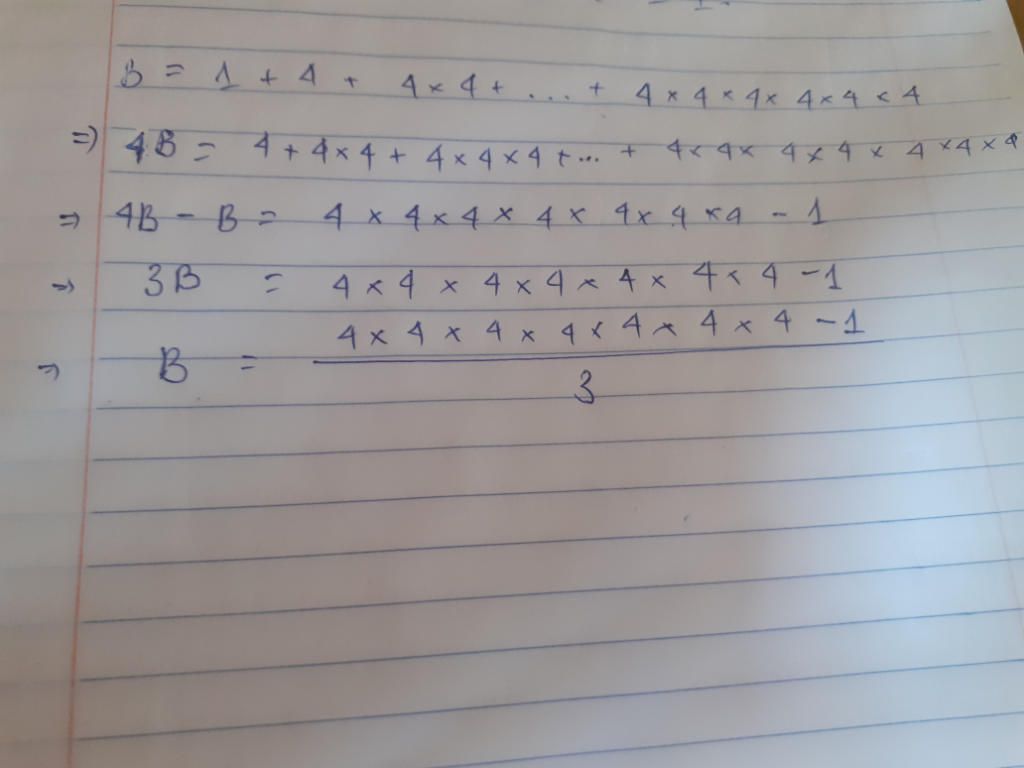 B = 1 + 4 + 4 × 4 + ... + 4 × 4 × 4 × 4 × 4 × 4
=) 4B = 4 + 4 × 4 + 4 × 4 × 4 + ... + 4 × 4 × 4 × 4 × 4 × 4 × 4
=> 4B - B = 4 × 4 × 4 × 4 × 4 × 4 × 4 - 1
=> 3B = 4 × 4 × 4 × 4 × 4 × 4 × 4 - 1
4 × 4 × 4 × 4 × 4 × 4 × 4 - 1
=> B =
3